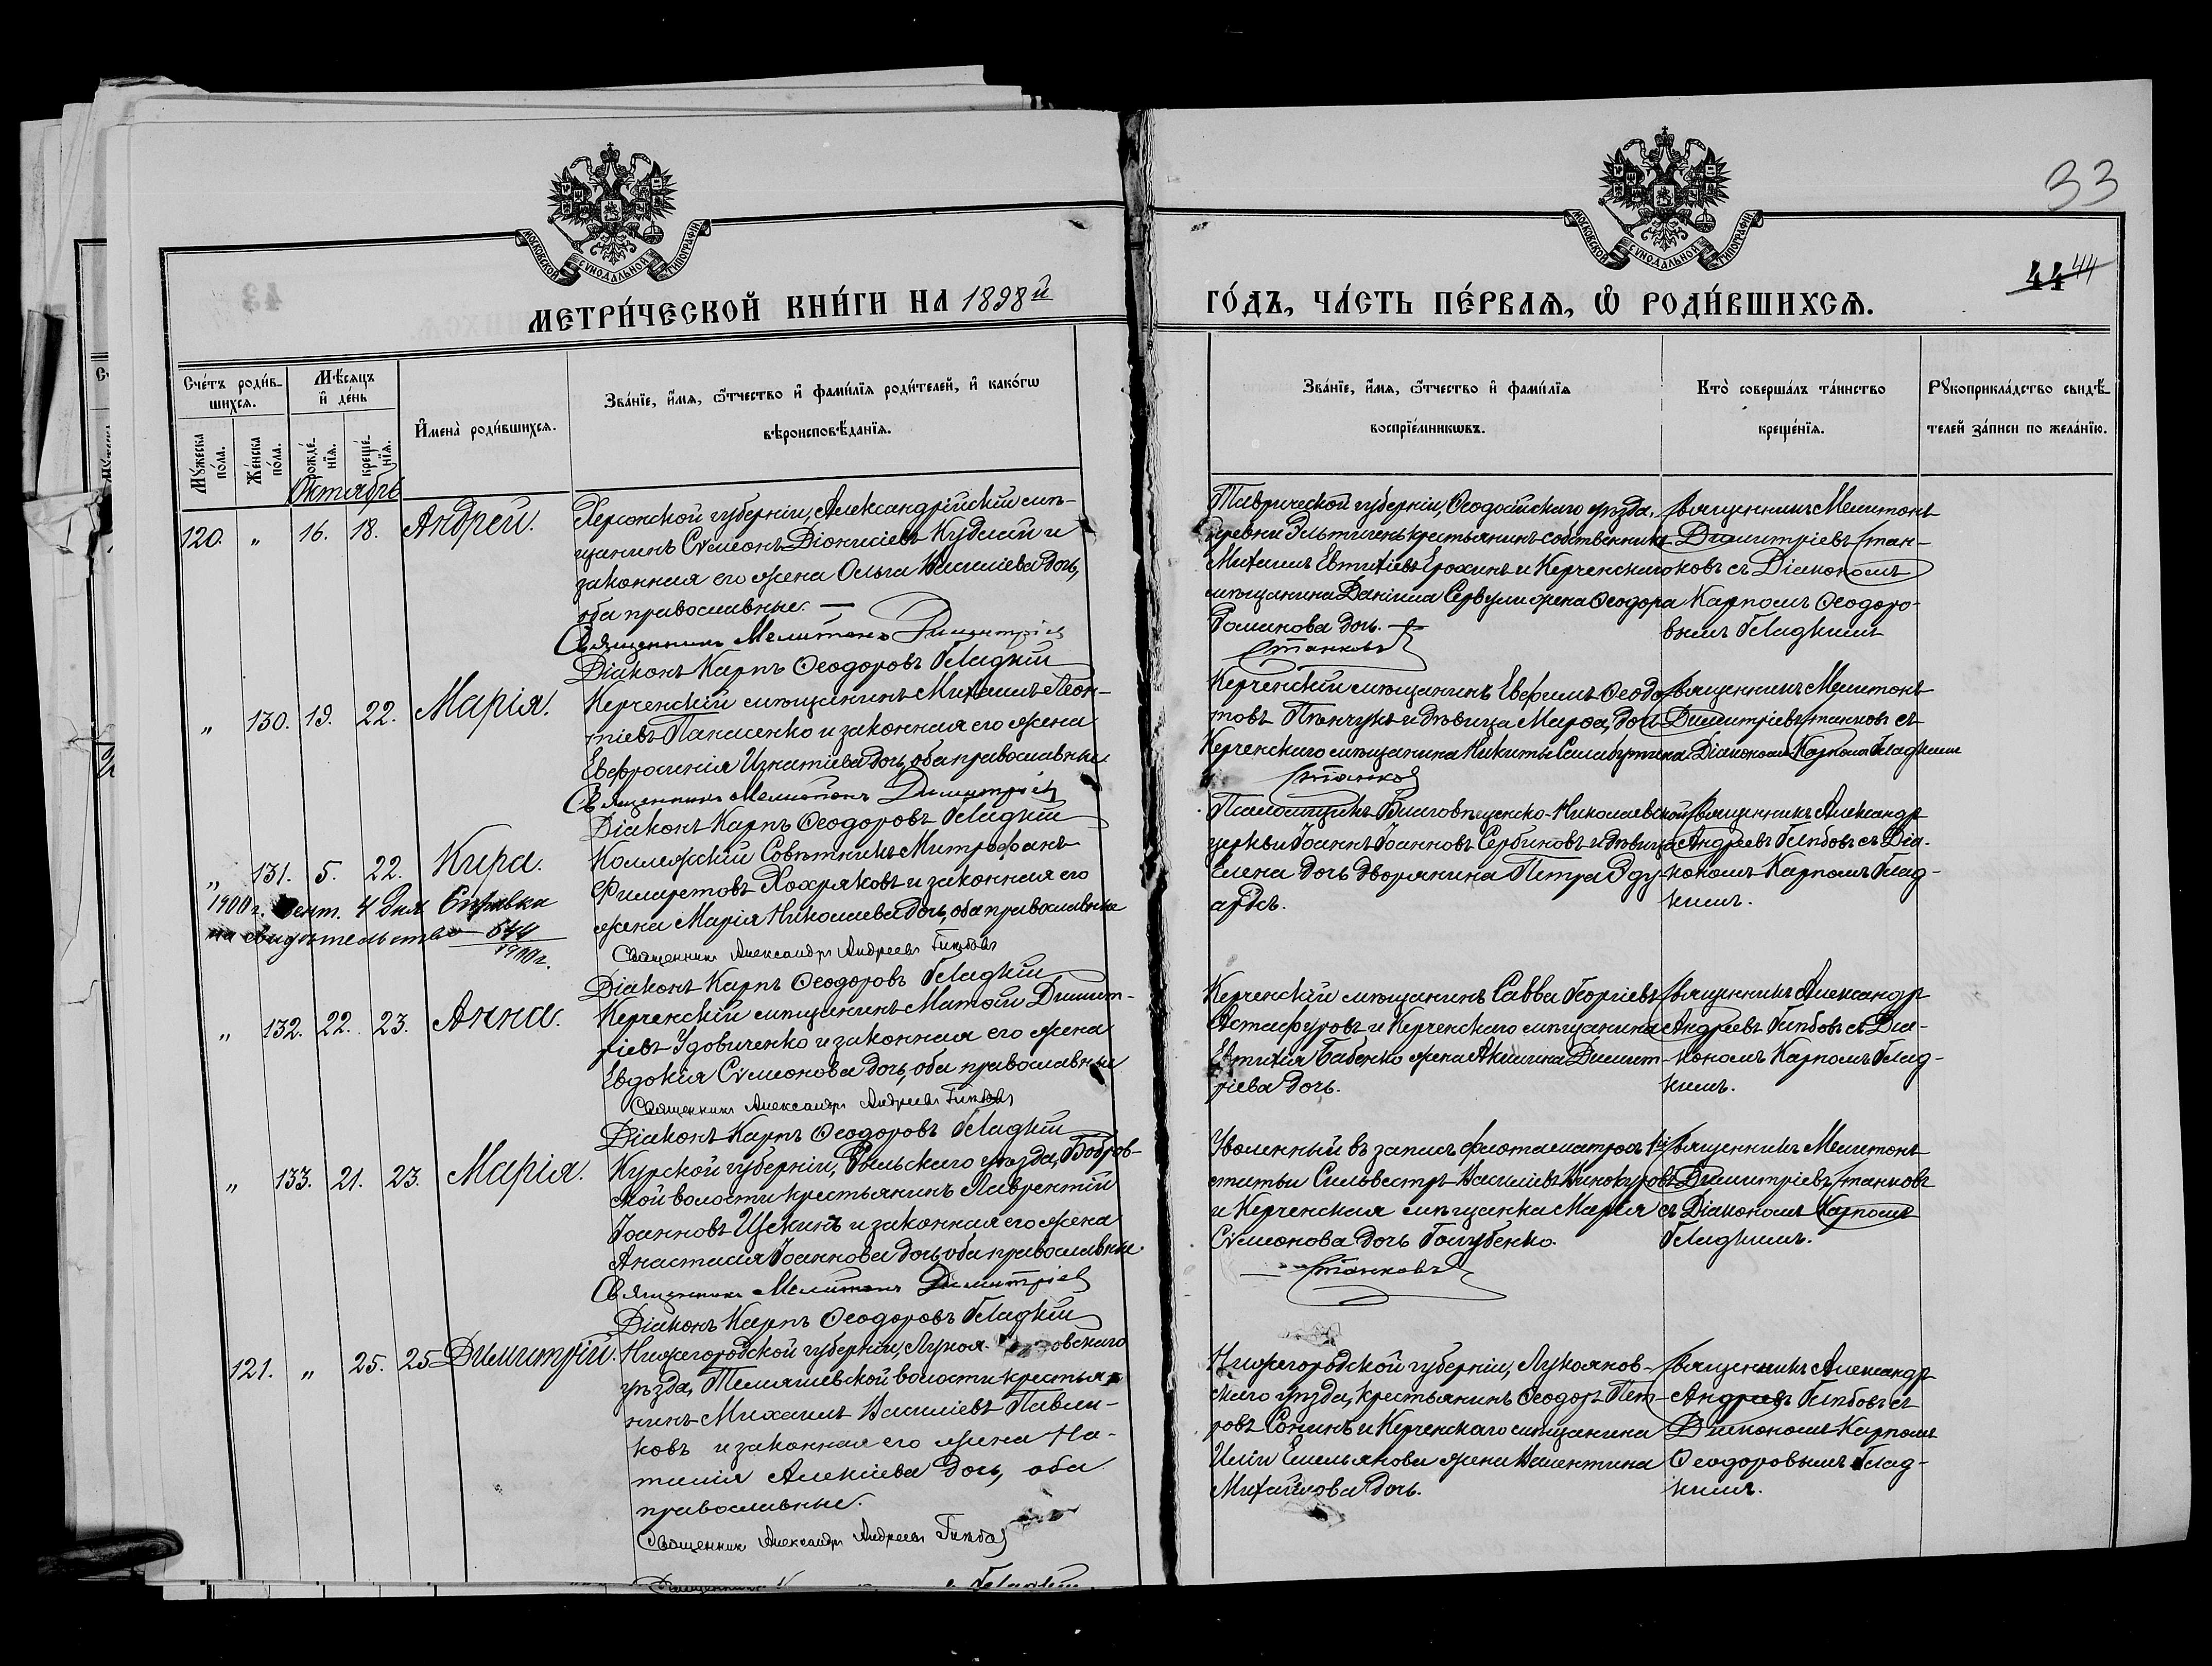 33
МОСКОВСКОЙ СѴНОДАЛЬНОЙ ТИПОГРАФІИ
МОСКОВСКОЙ СѴНОДАЛЬНОЙ ТИПОГРАФІИ
44 44
МЕТРИ́ЧЕСКОЙ КНИ́ГИ НА 1898й
ГО́ДЪ, ЧА́СТЬ ПЕ́РВАѦ, Ѡ҆ РОДИ́ВШИХСѦ.
Сче́тъ роди́в-
шихсѧ.
Мѣ́сѧцъ
и҆ де́нь
Мꙋ́жеска
по́ла.
Же́нска
по́ла.
рожде́-
нїѧ.
креще́-
нїѧ.
И҆мена̀ роди́вшихсѧ.
Зва́нїе, и҆́мѧ, ѻ҆́тчество и҆ фами́лїѧ роди́телей, и҆ како́гѡ
вѣроисповѣ́данїѧ.
Зва́нїе, и҆́мѧ, ѻ҆́тчество и҆ фами́лїѧ
воспрїе́мникѡвъ.
Кто̀ соверша́лъ та́инство
креще́нїѧ.
Рꙋкоприкла́дство свидѣ́-
телей за́писи по жела́нїю.
Октябрь
120. „ 16. 18. Андрей.
Херсонской губерніи, Александрійскій мѣ-
щанинъ Сѵмеонъ Діонисіевъ Кудлай и
законная его жена Ольга Василіева дочь,
оба православные. —
Священникъ Мелитонъ Димитріев
Діаконъ Карпъ Ѳеодоровъ Гладкій
Таврической губерніи, Ѳеодосійскаго уѣзда,
деревни Эльтигенъ крестьянинъ-собственникъ
Михаилъ Евтихіевъ Ерохинъ и Керченскаго
мѣщанина Даніила Сервули жена Ѳеодора
Романова дочь. —
Станковъ
Священникъ Мелитонъ
Димитріевъ Стан-
ковъ съ Діакономъ
Карпомъ Ѳеодоро-
вымъ Гладкимъ
„ 130. 19. 22. Марія.
Керченскій мѣщанинъ Михаилъ Леон-
тіевъ Панасенко и законная его жена
Евфросинія Игнатіева дочь, оба православные.
Священникъ Мелитонъ Димитріев
Діаконъ Карпъ Ѳеодоровъ Гладкій
Керченскій мѣщанинъ Евфимъ Ѳеодо-
товъ Пѣнчукъ и дѣвица Марѳа, дочь
Керченскаго мѣщанина Никиты
Станков
Священникъ Мелитонъ
Димитріевъ Станковъ съ
Діакономъ Карпомъ Гладкимъ
„ 131. 5. 22. Кира.
Коллежскій Совѣтникъ Митрофанъ
Филаретовъ Хохряковъ и законная его
жена Марія Николаева дочь, оба православные
Священникъ Александръ Андреевъ Гнѣдовъ
Діаконъ Карпъ Ѳеодоровъ Гладкій
1900 г. Сент. 4 дня Справка
на свидѣтельство 544
1900 г.
Псаломщикъ Благовѣщенско-Николаевской
церкви Іоаннъ Іоанновъ Сербиновъ и дѣвица
Елена дочь дворянина Петра Эду-
ардсъ.
Священникъ Александръ
Андреевъ Гнѣдовъ съ Діа-
кономъ Карпомъ Глад-
кимъ.
„ 132. 22. 23. Анна.
Керченскій мѣщанинъ Матѳій Димит-
ріевъ Удовиченко и законная его жена
Евдокія Сѵмеонова дочь, оба православные
Священникъ Александръ Андреевъ Гнѣдовъ
Діаконъ Карпъ Ѳеодоровъ Гладкій
Керченскій мѣщанинъ Савва Георгіевъ
Астафуровъ и Керченскаго мѣщанина
Евтихія Бабенко жена Акилина Димит-
ріева дочь.
Священникъ Александръ
Андреевъ Гнѣдовъ съ Діа-
кономъ Карпомъ Глад-
кимъ.
„ 133. 21. 23. Марія.
Курской губерніи, Рыльскаго уѣзда, Бобров-
ской волости крестьянинъ Лаврентій
Іоанновъ Щекинъ и законная его жена
Анастасія Іоаннова дочь, оба православные.
Священникъ Мелитонъ Димитріев
Діаконъ Карпъ Ѳеодоровъ Гладкій
Уволенный въ запасъ флота матросъ 1й
статьи Сильвестръ Василіевъ Винокуровъ
и Керченская мѣщанка Марія
Сѵмеонова дочь Голубенко.
Станковъ
Священникъ Мелитонъ
Димитріевъ Станковъ
съ Діакономъ Карпомъ
Гладкимъ.
121. „ 25. 25 Димитрій.
Нижегородской губерніи, Лукоя-
уѣзда, волости крестья-
нинъ Михаилъ Василіевъ Павли-
ковъ и законная его жена На-
талія Алексіева дочь, оба
православные.
Священникъ Александръ Андреевъ Гнѣдов
Нижегородской губерніи, Лукоянов-
скаго уѣзда, крестьянинъ Ѳеодоръ Пет-
ровъ Сонинъ и Керченскаго мѣщанина
Иліи Емельянова жена Валентина
Михайлова дочь.
Священникъ Александръ
Андреевъ Гнѣдовъ съ
Діакономъ Карпомъ
Ѳеодоровымъ Глад-
кимъ.